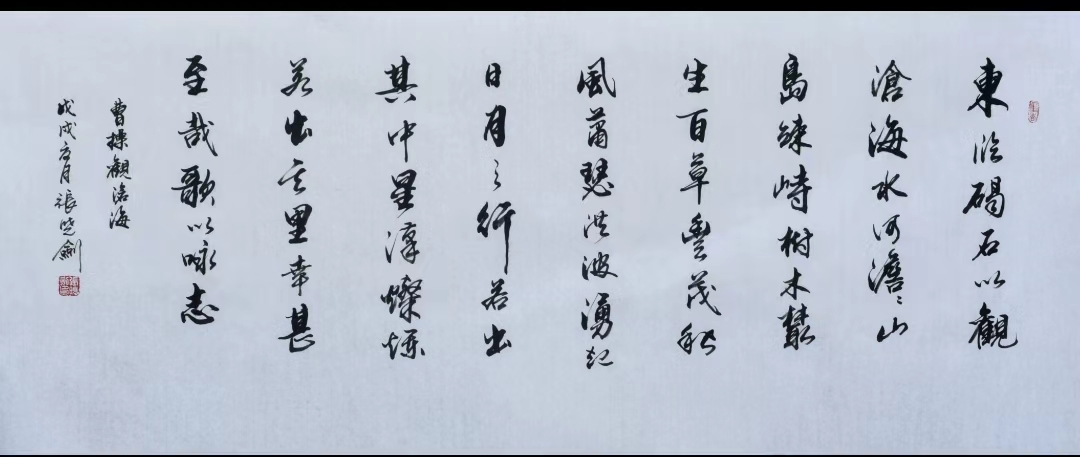 東临碣石以觀
滄海水何澹々山
島竦峙樹木叢
生百草豐茂秋
風蕭瑟洪波湧起
日月之行若出
其中星漢燦爛
若出其里幸甚
至哉歌以咏志
曹操觀滄海
戊戌六月張晓劍